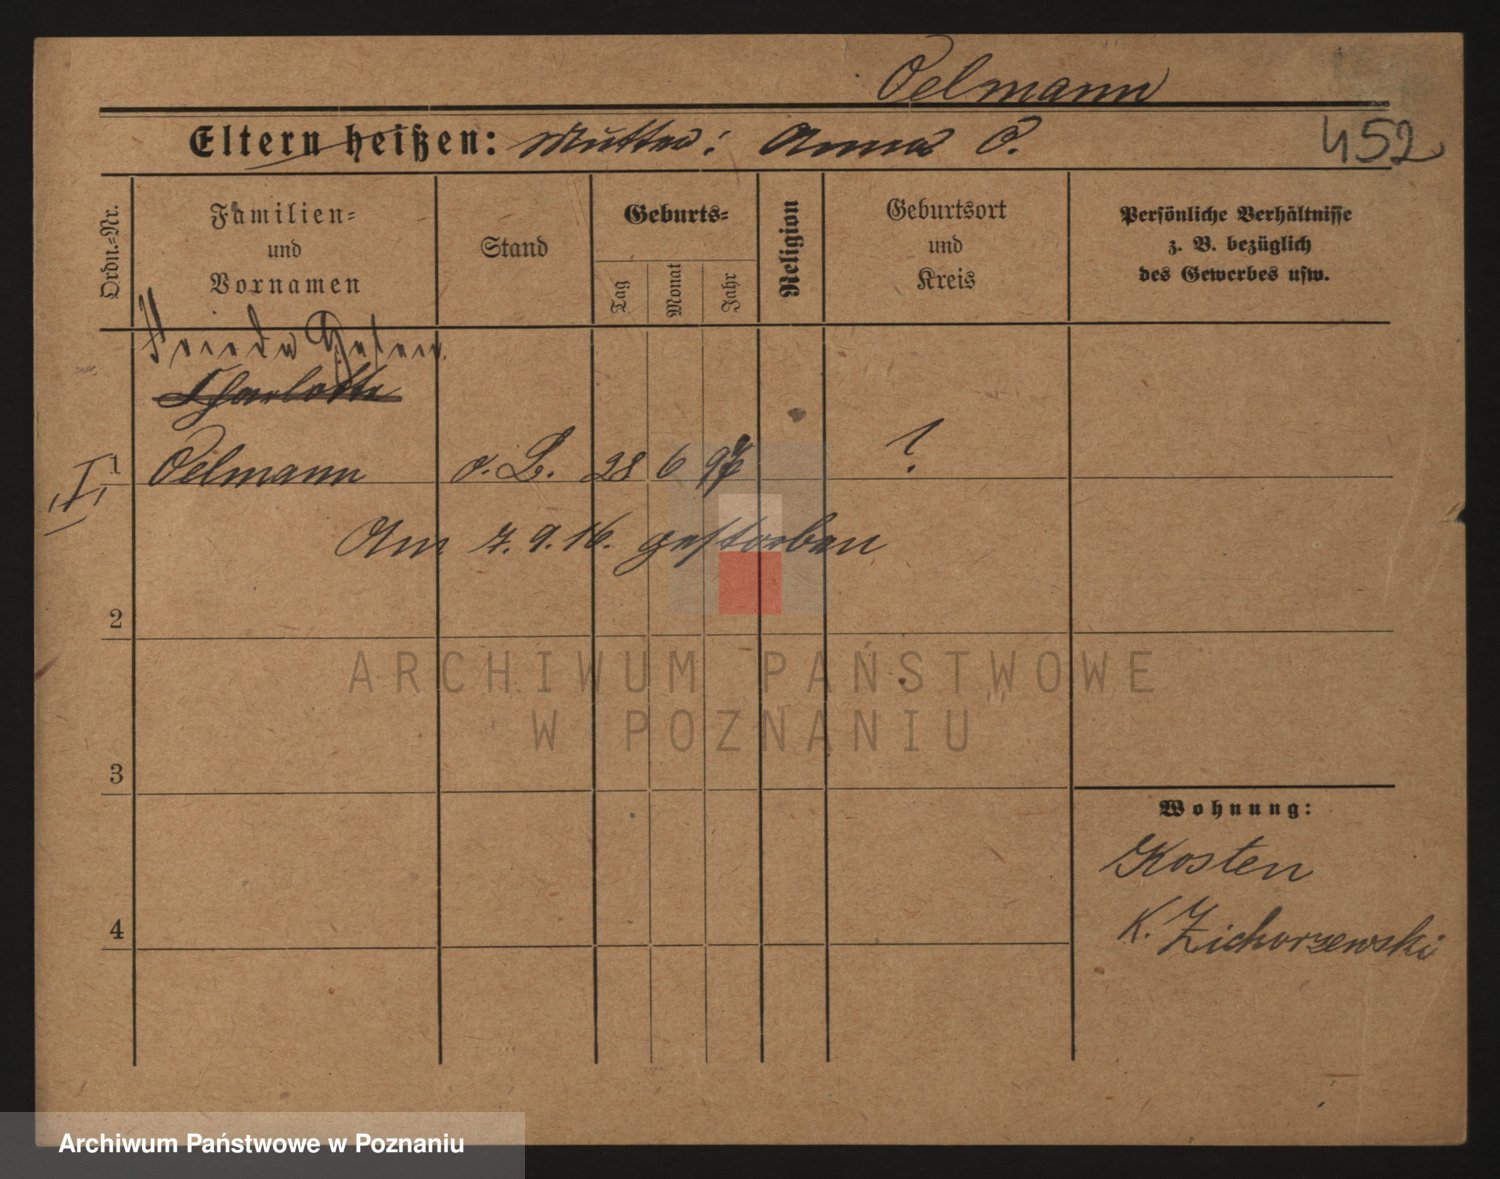 Oelmann
452
Eltern heißen: Mutter: Anna O.
Ordn.=Nr.
Familien=
und
Vornamen
Stand
Geburts=
Tag
Monat
Jahr
Religion
Geburtsort
und
Kreis
Persönliche Verhältnisse
z. B. bezüglich
des Gewerbes usw.
Frieda
Charlotte
I
1
Oelmann o. B. 28 6 97 ?
Am 7. 9. 16. gestorben
2
3
4
Wohnung:
Kosten
K. Zichorzewski
ARCHIWUM PAŃSTWOWE
W POZNANIU
Archiwum Państwowe w Poznaniu